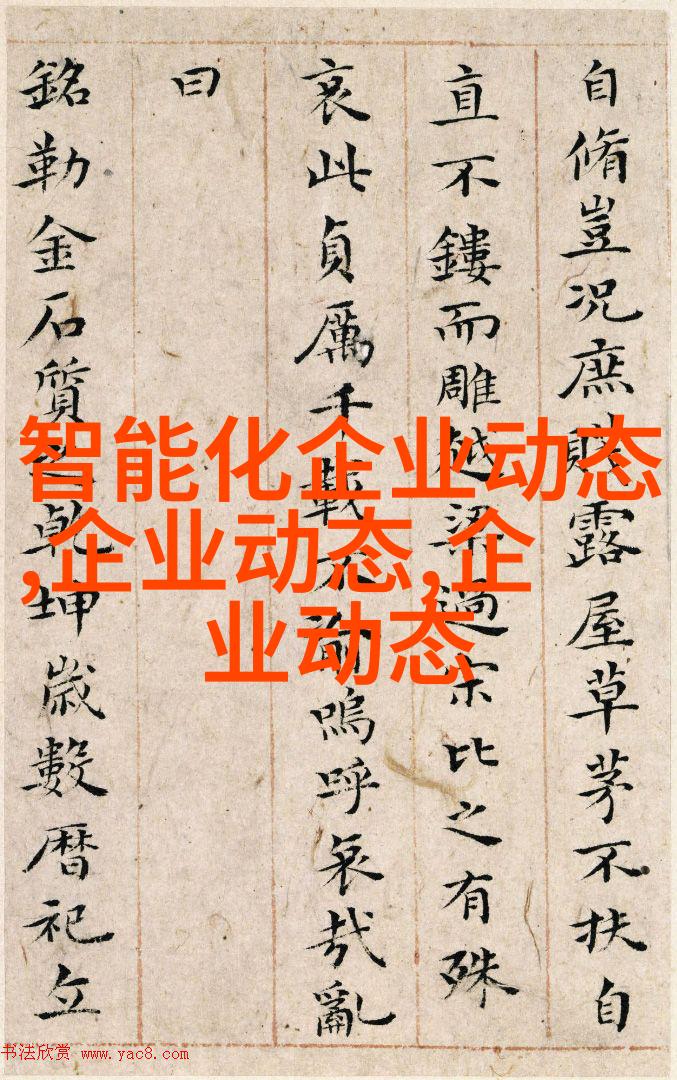 自脩豈况庶賤露屋草茅不扶自
直不鏤而雕越梁過宋比之有殊
哀此貞厲千載不渝嗚呼哀哉亂
曰
銘勒金石質之乾坤歲數暦祀立
智能化企业动态
,企业动态,企
业动态
书法欣赏 www.yac8.com